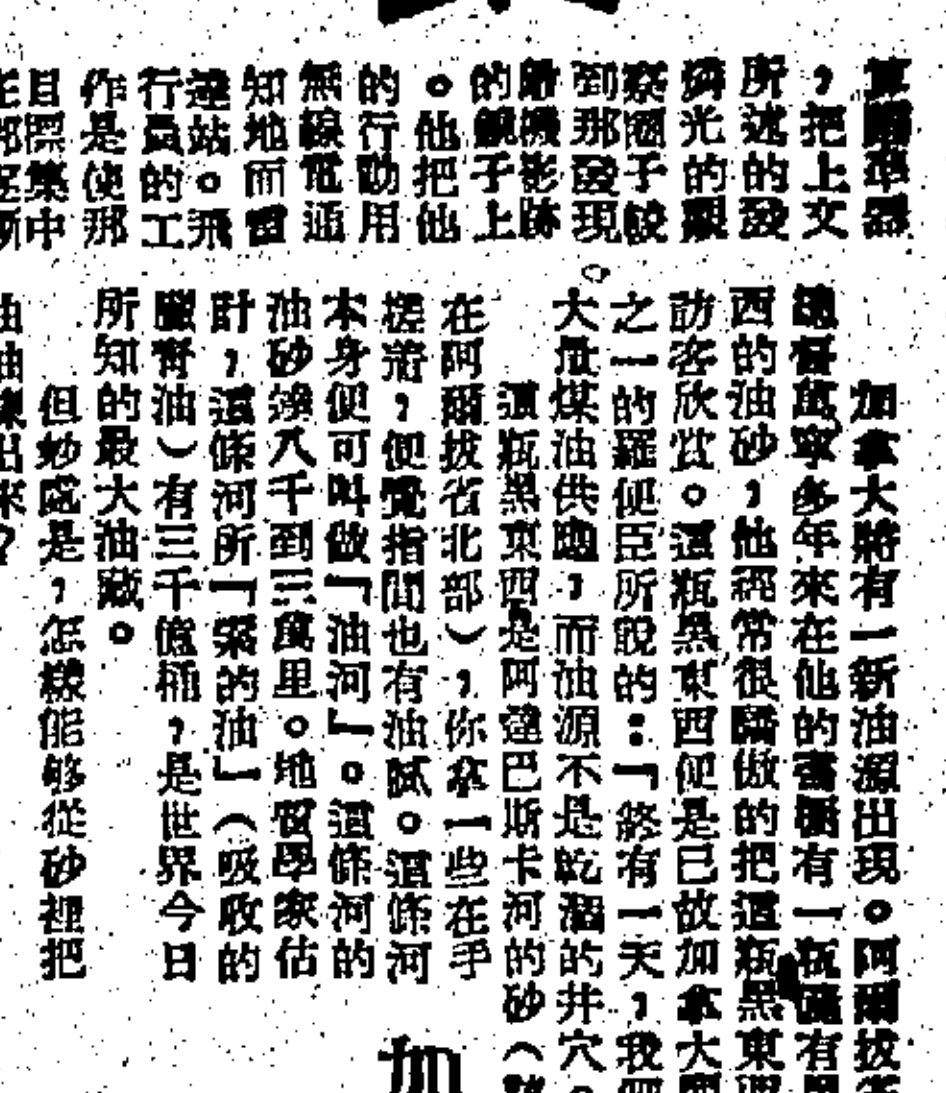 算瞄準器
，把上文
所述的發
燐光的觀
察圈子說
到那發現
的觀子上
。他把他
的行動用
無線電通
知地面雷
達站。飛
行員的工
作是使那
目標集中
加拿大將有一新油源出現。阿爾拔
總督萬寧多年來在他的書櫥有一瓶
西的油砂，他經常很驕傲的把這瓶黑東
訪客欣賞。這瓶黑東西便是已故加拿大
之一的羅便臣所說的：『終有一天，我
大量煤油供應，而油源不是乾涸的井穴。
這瓶黑東西是阿達巴斯卡河的砂（
在阿爾拔省北部），你拿一些在手
搓着，便覺指間也有油膩。這條河
本身便可叫做『油河』。這條河的
油砂達八千到三萬里。地質學家估
計，這條河所『築的油』（吸收的
臘膏油）有三千億桶，是世界今日
所知的最大油藏。
但妙處是，怎樣能够從砂裡把
油油榨出來？
加